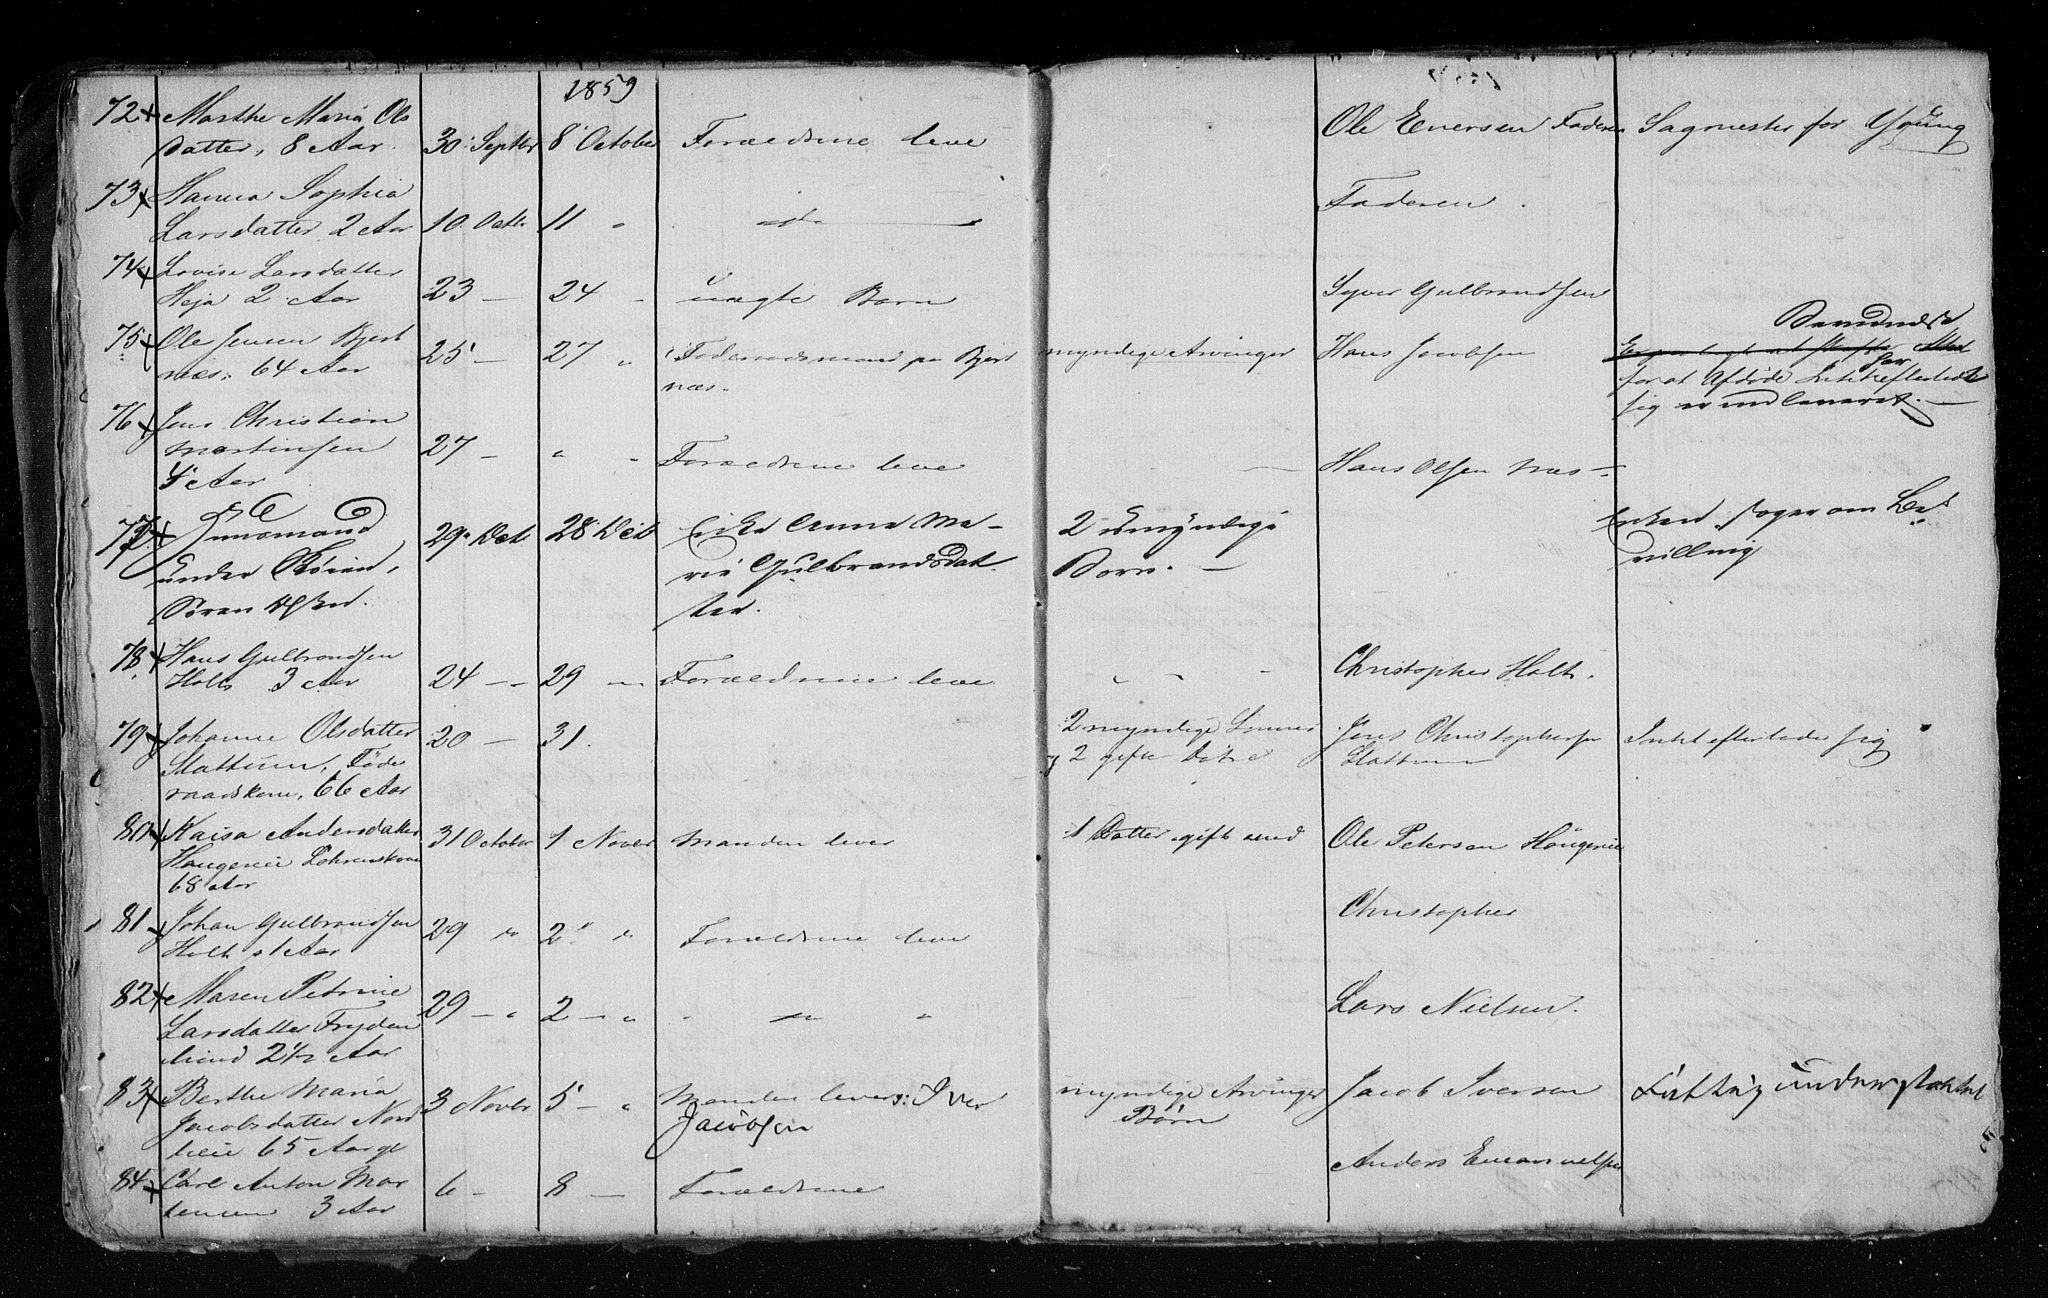 1859
72 Marthe Maria Ols
datter, 8 Aar. 30 Septbr 8 October Forældrene leve Ole Evensen Faderen Sagmester for Young
73 Hanna Sophia
Larsdatter 2 Aar 10 Octbr 11 " do Faderen.
74 Lovise Larsdatter
Heja 2 Aar 23 — 24 uægte Barn Syver Gulbrandsen
75 Ole Jensen Bjert
næs. 64 Aar 25 — 27 " Føderaadsmand på Bjert
næs. myndige Arvinger Hans Jacobsen
for at Afdøde Intet efterlod
sig er indleveret. —
76 Jens Christian
Martinsen
4 Aar 27 — " Forældrene leve — Hans Olsen Næs —
77
under
Søren Olsen. 29 28 Enke Anna Ma-
rie Gulbrandsdat
ter. 2 umyndige
Børn. — Enken søger om Be
villing
78 Hans Gulbrandsen
Holt 3 Aar 24 — 29 Forældrene leve Christopher Holt.
79 Johanne Olsdatter
Stattuen, Føde
raadskone, 66 Aar 20 — 31. 2 myndige Sønner
og 2 gifte Døtre Jens Christophersen
Stattuen Intet efterlade sig
80 Kaisa Andersdatter
Haugerei
68 Aar 31 October 1 Novbr Manden lever 1 Datter gift med Ole Petersen Haugerei
81 Johan Gulbrandsen
Holt 1 Aar 29 do 2 do Forældrene leve Christopher
82 Maren Petrine
Larsdatter Fryden
lund 2½ Aar 29 — " 2 — " " do " Lars Nielsen.
83 Berthe Maria
Jacobsdatter Nord
lieie 65 Aar gl 3 Novbr 5 — " Manden lever: Iver
Jacobsen myndige Arvinger
Børn Jacob Iversen Fattig understøttet
84 Carl Anton Mar
tensen 3 Aar 6 — 8 — Forældrene Anders Emanuelsen